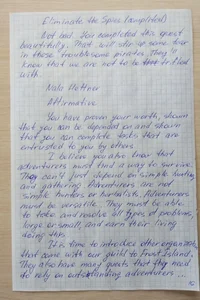 Eliminate the Spies (completed)
Not bad. You completed this quest
beautifully. That will stir up some fear
in those troublesome pirates. They'll
know that we are not to be trifled
with.
Mala Hettner
Affirmative.
You have proven your worth, shown
that you can be depended on and shown
that you can complete tasks that are
entrusted to you by others.
I believe you also know that
adventurers must find a way to survive.
They can't just depend on simple hunting
and gathering. Adventurers are not
simple hunters or herbalists. Adventurers
must be versatile. They must be able
to take and resolve all types of problems,
large or small, and earn their living
doing this.
It is time to introduce other organizat
that came with our guild to Trust Island.
They also have many quests that they need
to rely on outstanding adventurers...